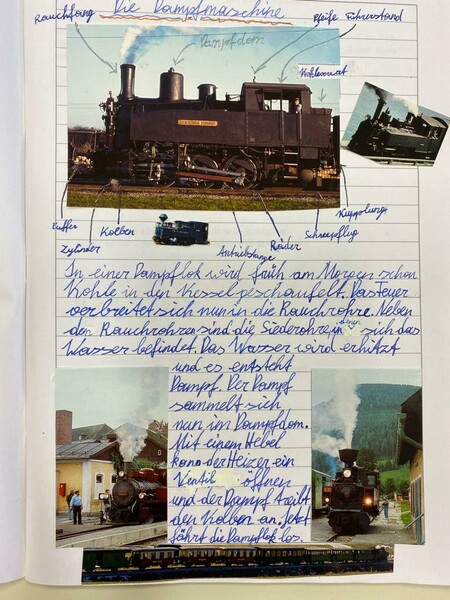 Die Dampfmaschine
Rauchfang
Dampfdom
Pfeife Führerstand
Kohlevorrat
Puffer
Zylinder
Kolben
Antriebstange
Räder
Schneepflug
Kupplung
In einer Dampflok wird früh am Morgen schon
Kohle in den Kessel geschaufelt. Das Feuer
verbreitet sich nun in die Rauchrohre. Neben
den Rauchrohren sind die Siederohre in denen sich das
Wasser befindet. Das Wasser wird erhitzt
und es entsteht
Dampf. Der Dampf
sammelt sich
nun im Dampfdom.
Mit einem Hebel
kann der Heizer ein
Ventil öffnen
und der Dampf treibt
den Kolben an. Jetzt
fährt die Dampflok los.